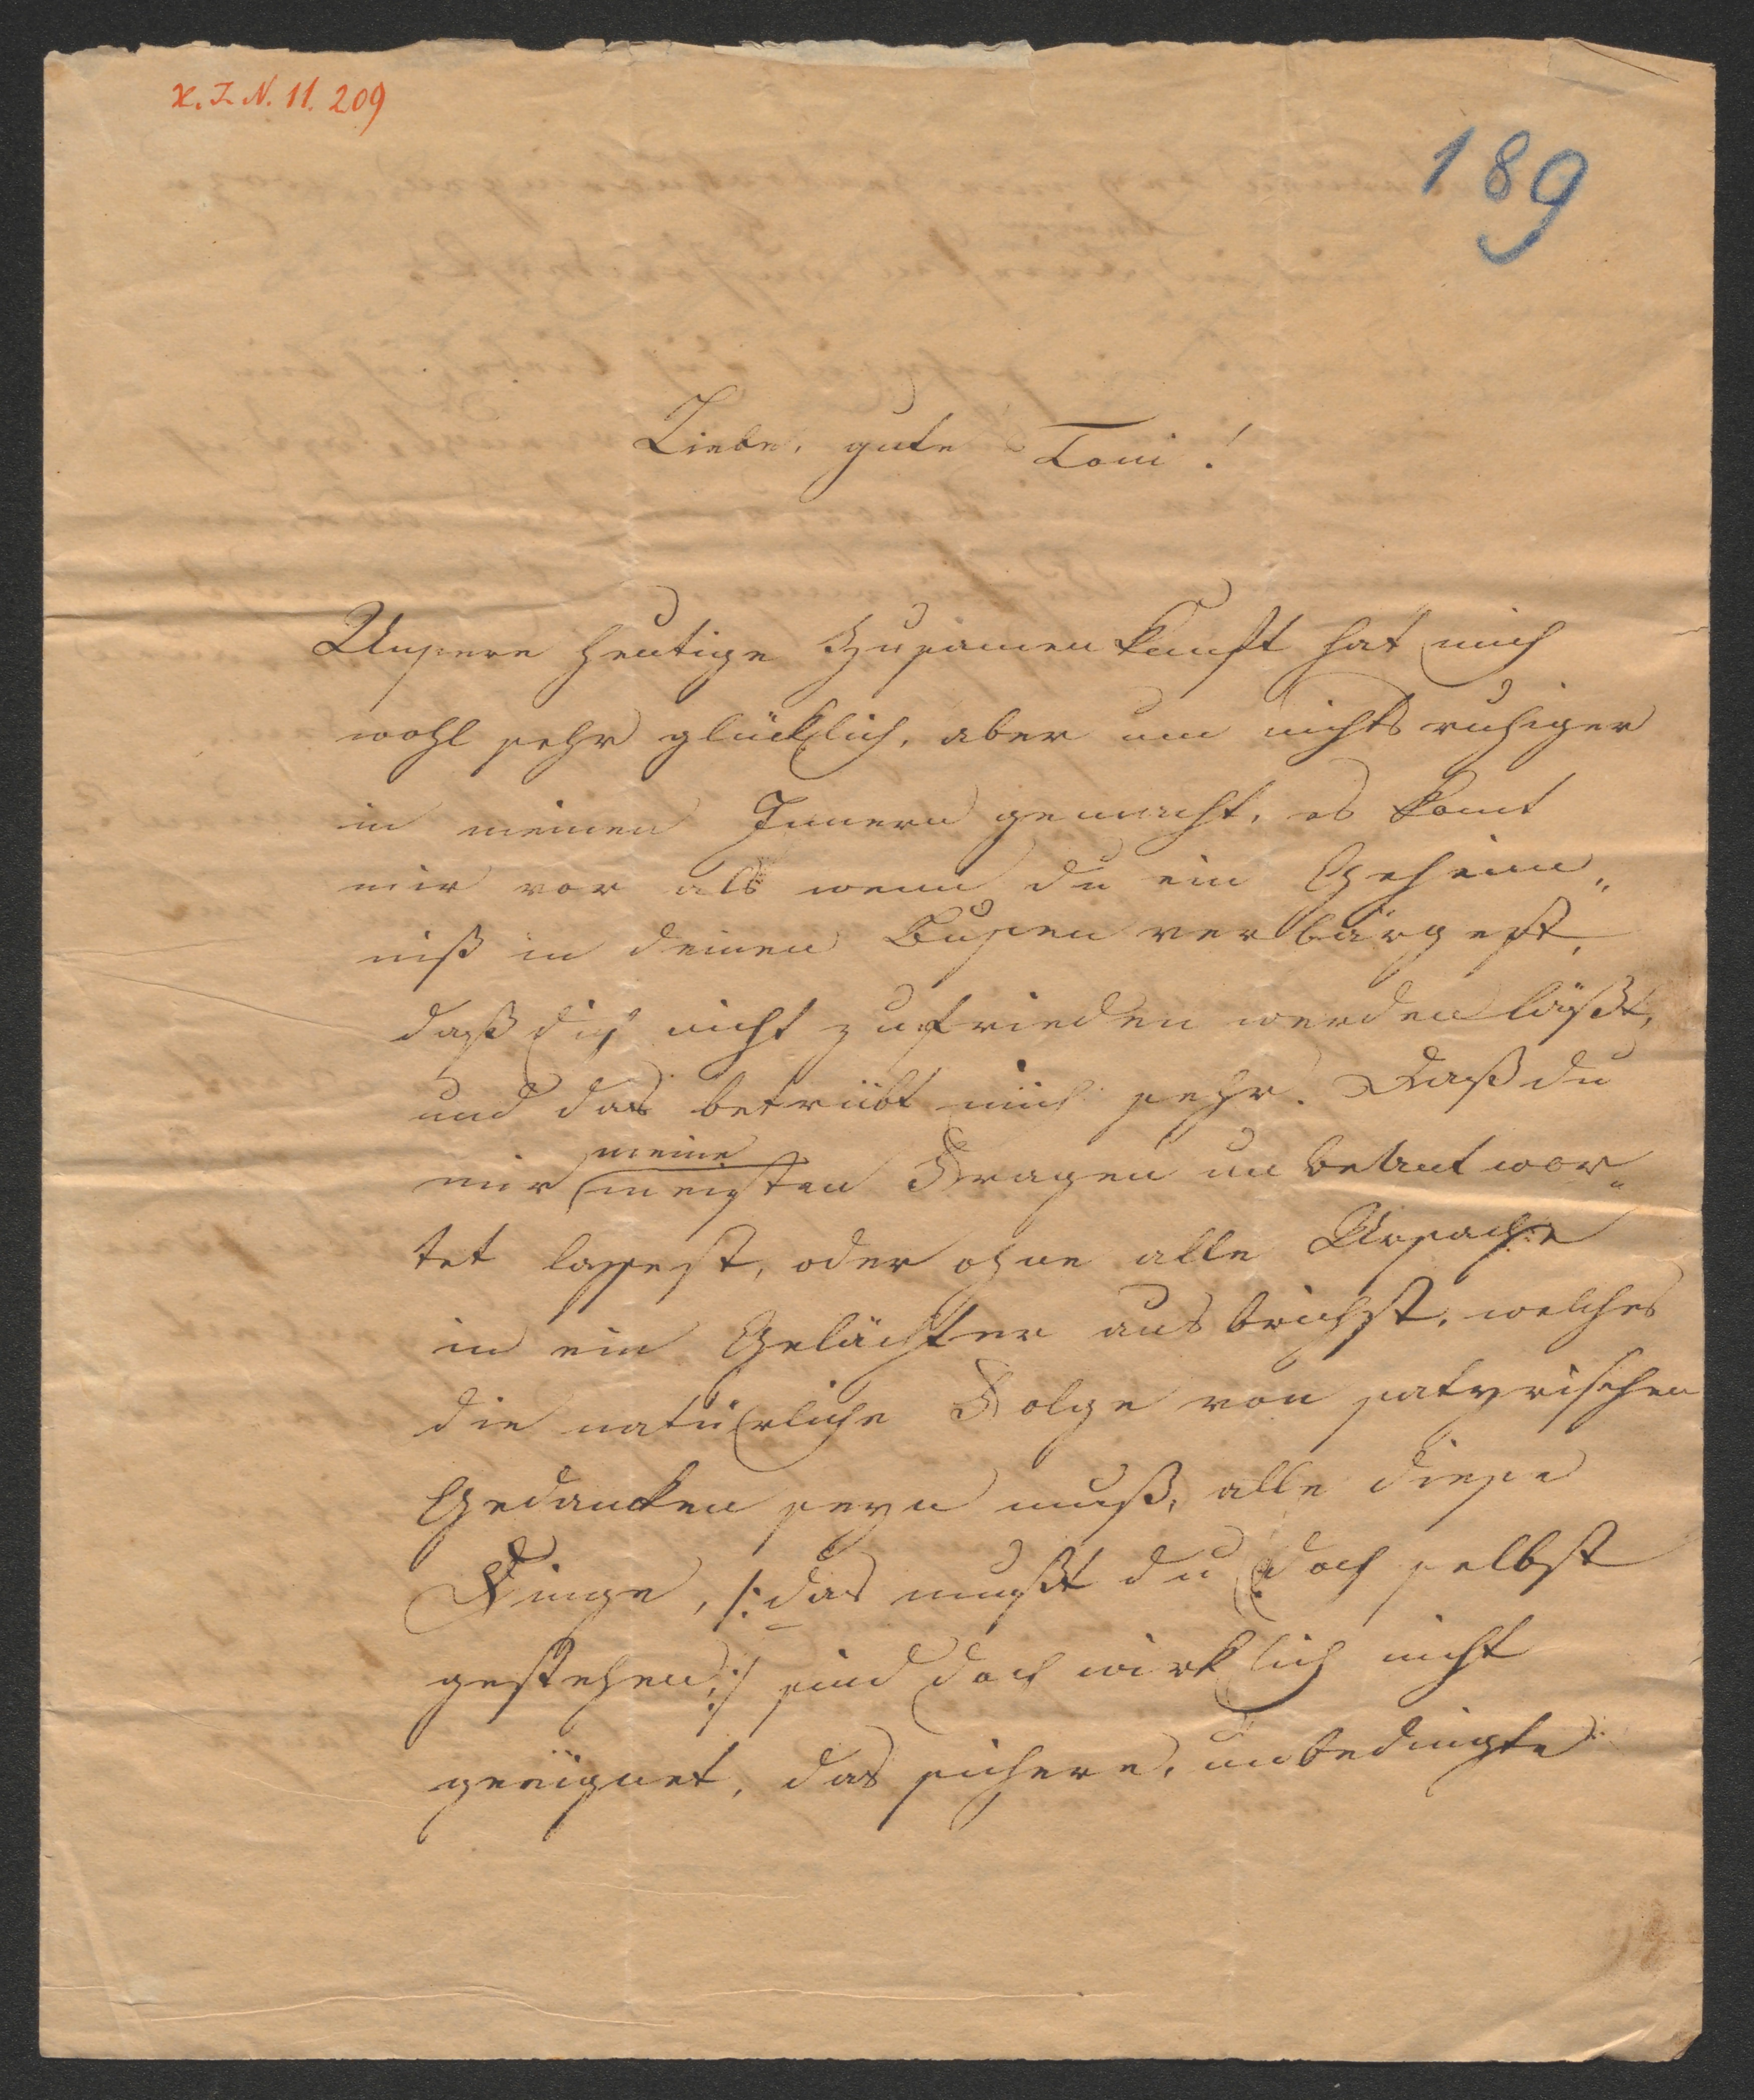 H. I. N. 11. 209
189
Liebe, gute Toni!
Unsere heutige Zusamenkunft hat mich
wohl sehr glücklich, aber um nichts ruhiger
in meinen Innern gemacht, es komt
mir vor als wenn du ein Geheim„
niß in deinen Busen verbärgest,
daß dich nicht zufrieden werden läßt,
und das betrübt mich sehr. Daß du
meine
mir meisten Fragen unbeantwor„
tet lassest, oder ohne alle Ursache
in ein Gelächter ausbrichst, welches
die natürliche Folge von satyrischen
Gedancken seyn muß, alle diese
Dinge, /: das mußt du doch selbst
gestehen, :/ sind doch wirklich nicht
geeignet, das sichere, unbedingte